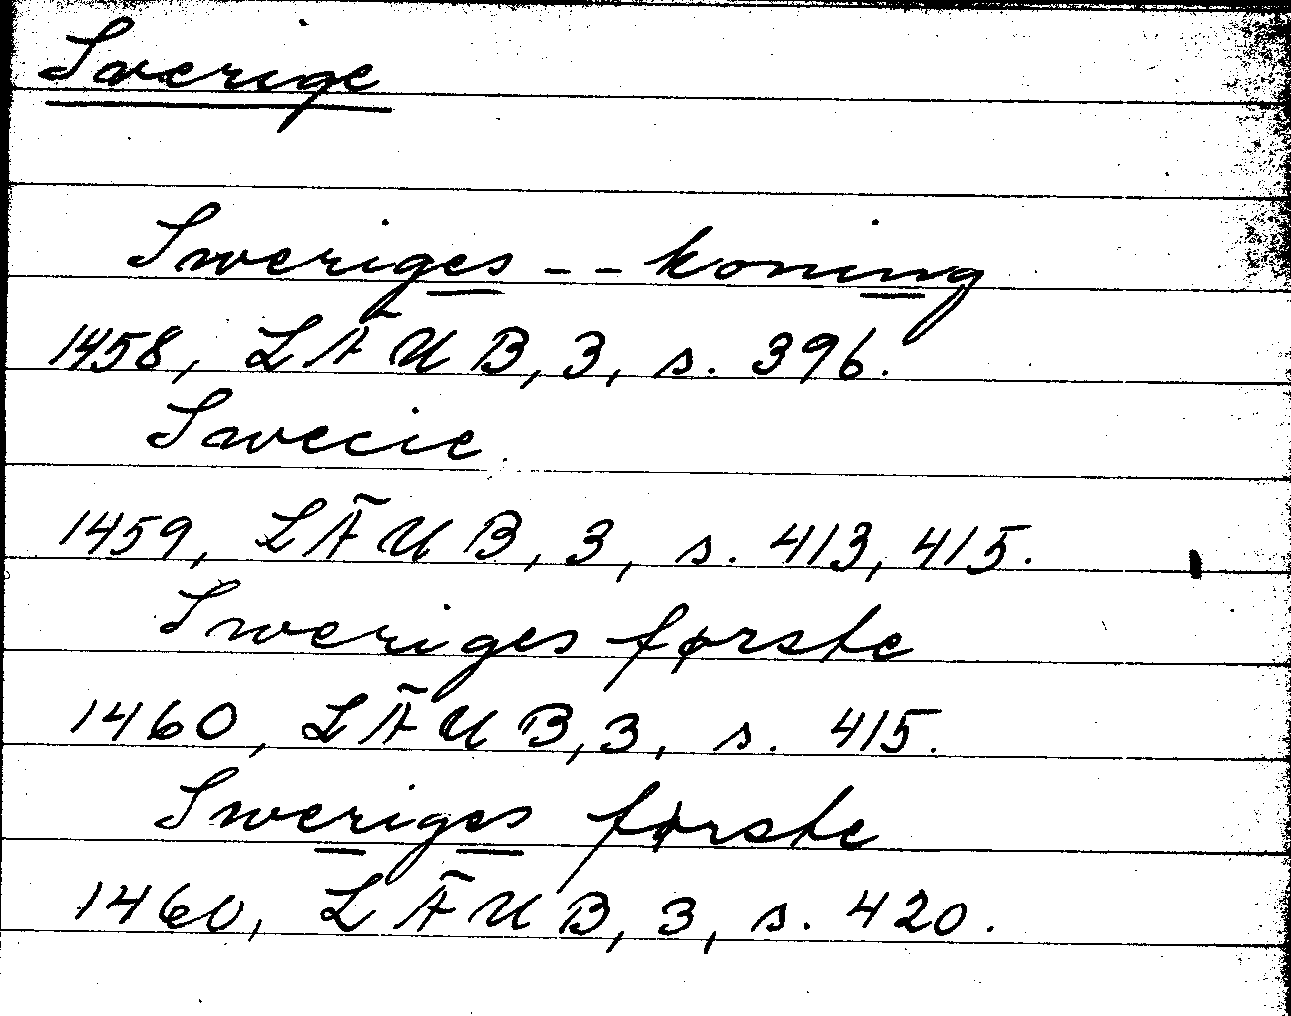 Sverige
Sweriges -- koning
1458, LÄUB, 3, s. 396.
Swecie
1459, LÄUB, 3, s. 413, 415.
Sweriges første
1460, LÄUB, 3, s. 415.
Sweriges første
1460, LÄUB, 3, s. 420.